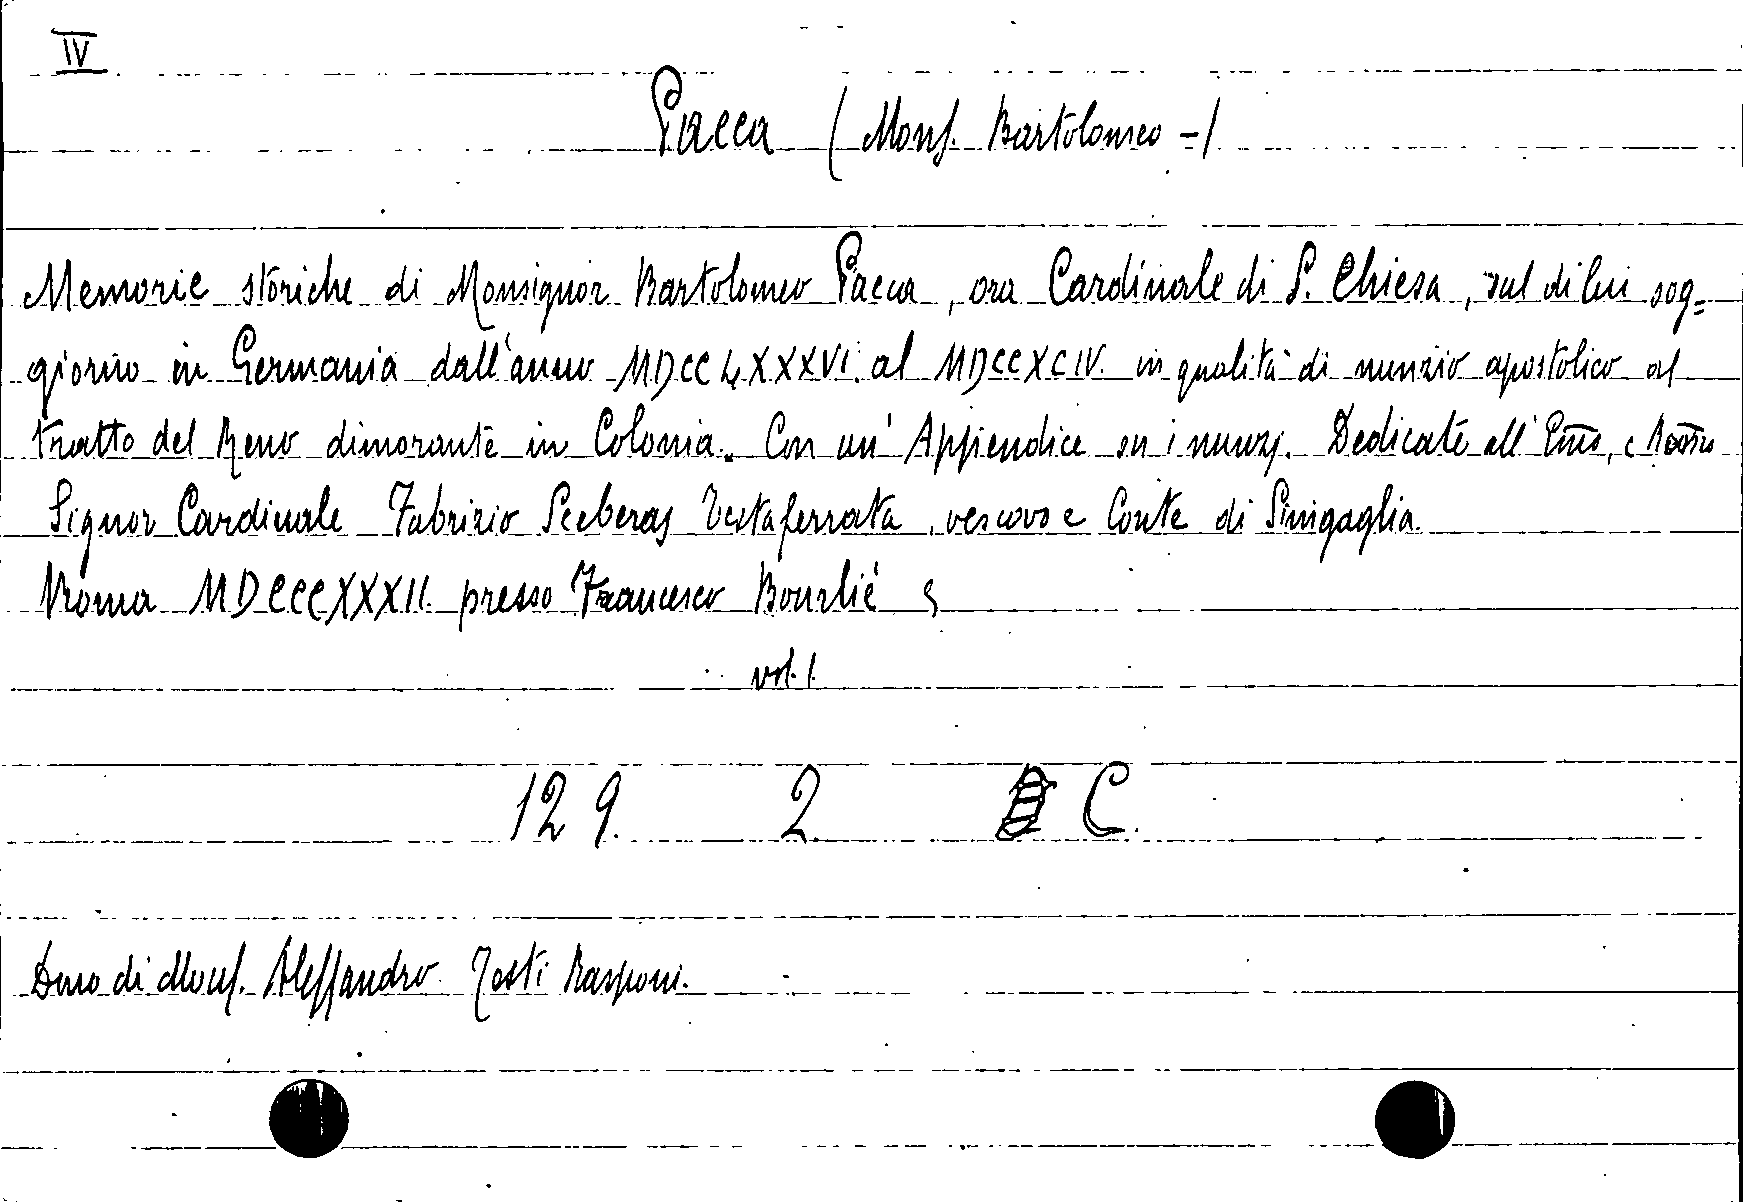 IV
Pacca (Mons. Bartolomeo -)
Memorie storiche di Monsignor Bartolomeo Pacca, ora Cardinale di S. Chiesa, sul di lui sog=
giorno in Germania dall'anno MDCCLXXXVI. al MDCCXCIV. in qualità di nunzio apostolico al
tratto del Reno dimorante in Colonia. Con un' Appendice su i nunzj. Dedicate all' Emo, e
Signor Cardinale Fabrizio Sceberas Testaferrata, vescovo e Conte di Sinigaglia.
Roma MDCCCXXXII. presso Francesco Bourlié
vol. 1.
129. 2. C.
Dono di Mons. Alessandro Testi Rasponi.